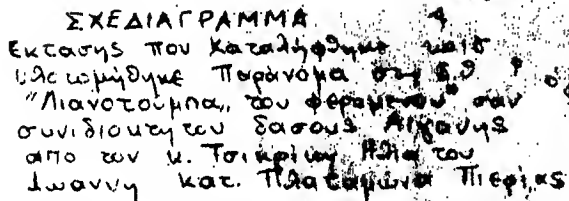 ΣΧΕΔΙΑΓΡΑΜΜΑ
Εκτασης που καταλήφθηκε και
υλοτομήθηκε Παράνομα στη θ
"Λιανοτούμπα" του φερομενου σαν
συνιδιοκτητου δασους Αιγανης
απο τον κ. Τσικρίκη Ηλία του
Ιωαννη κατ. Πλαταμώνα Πιερίας